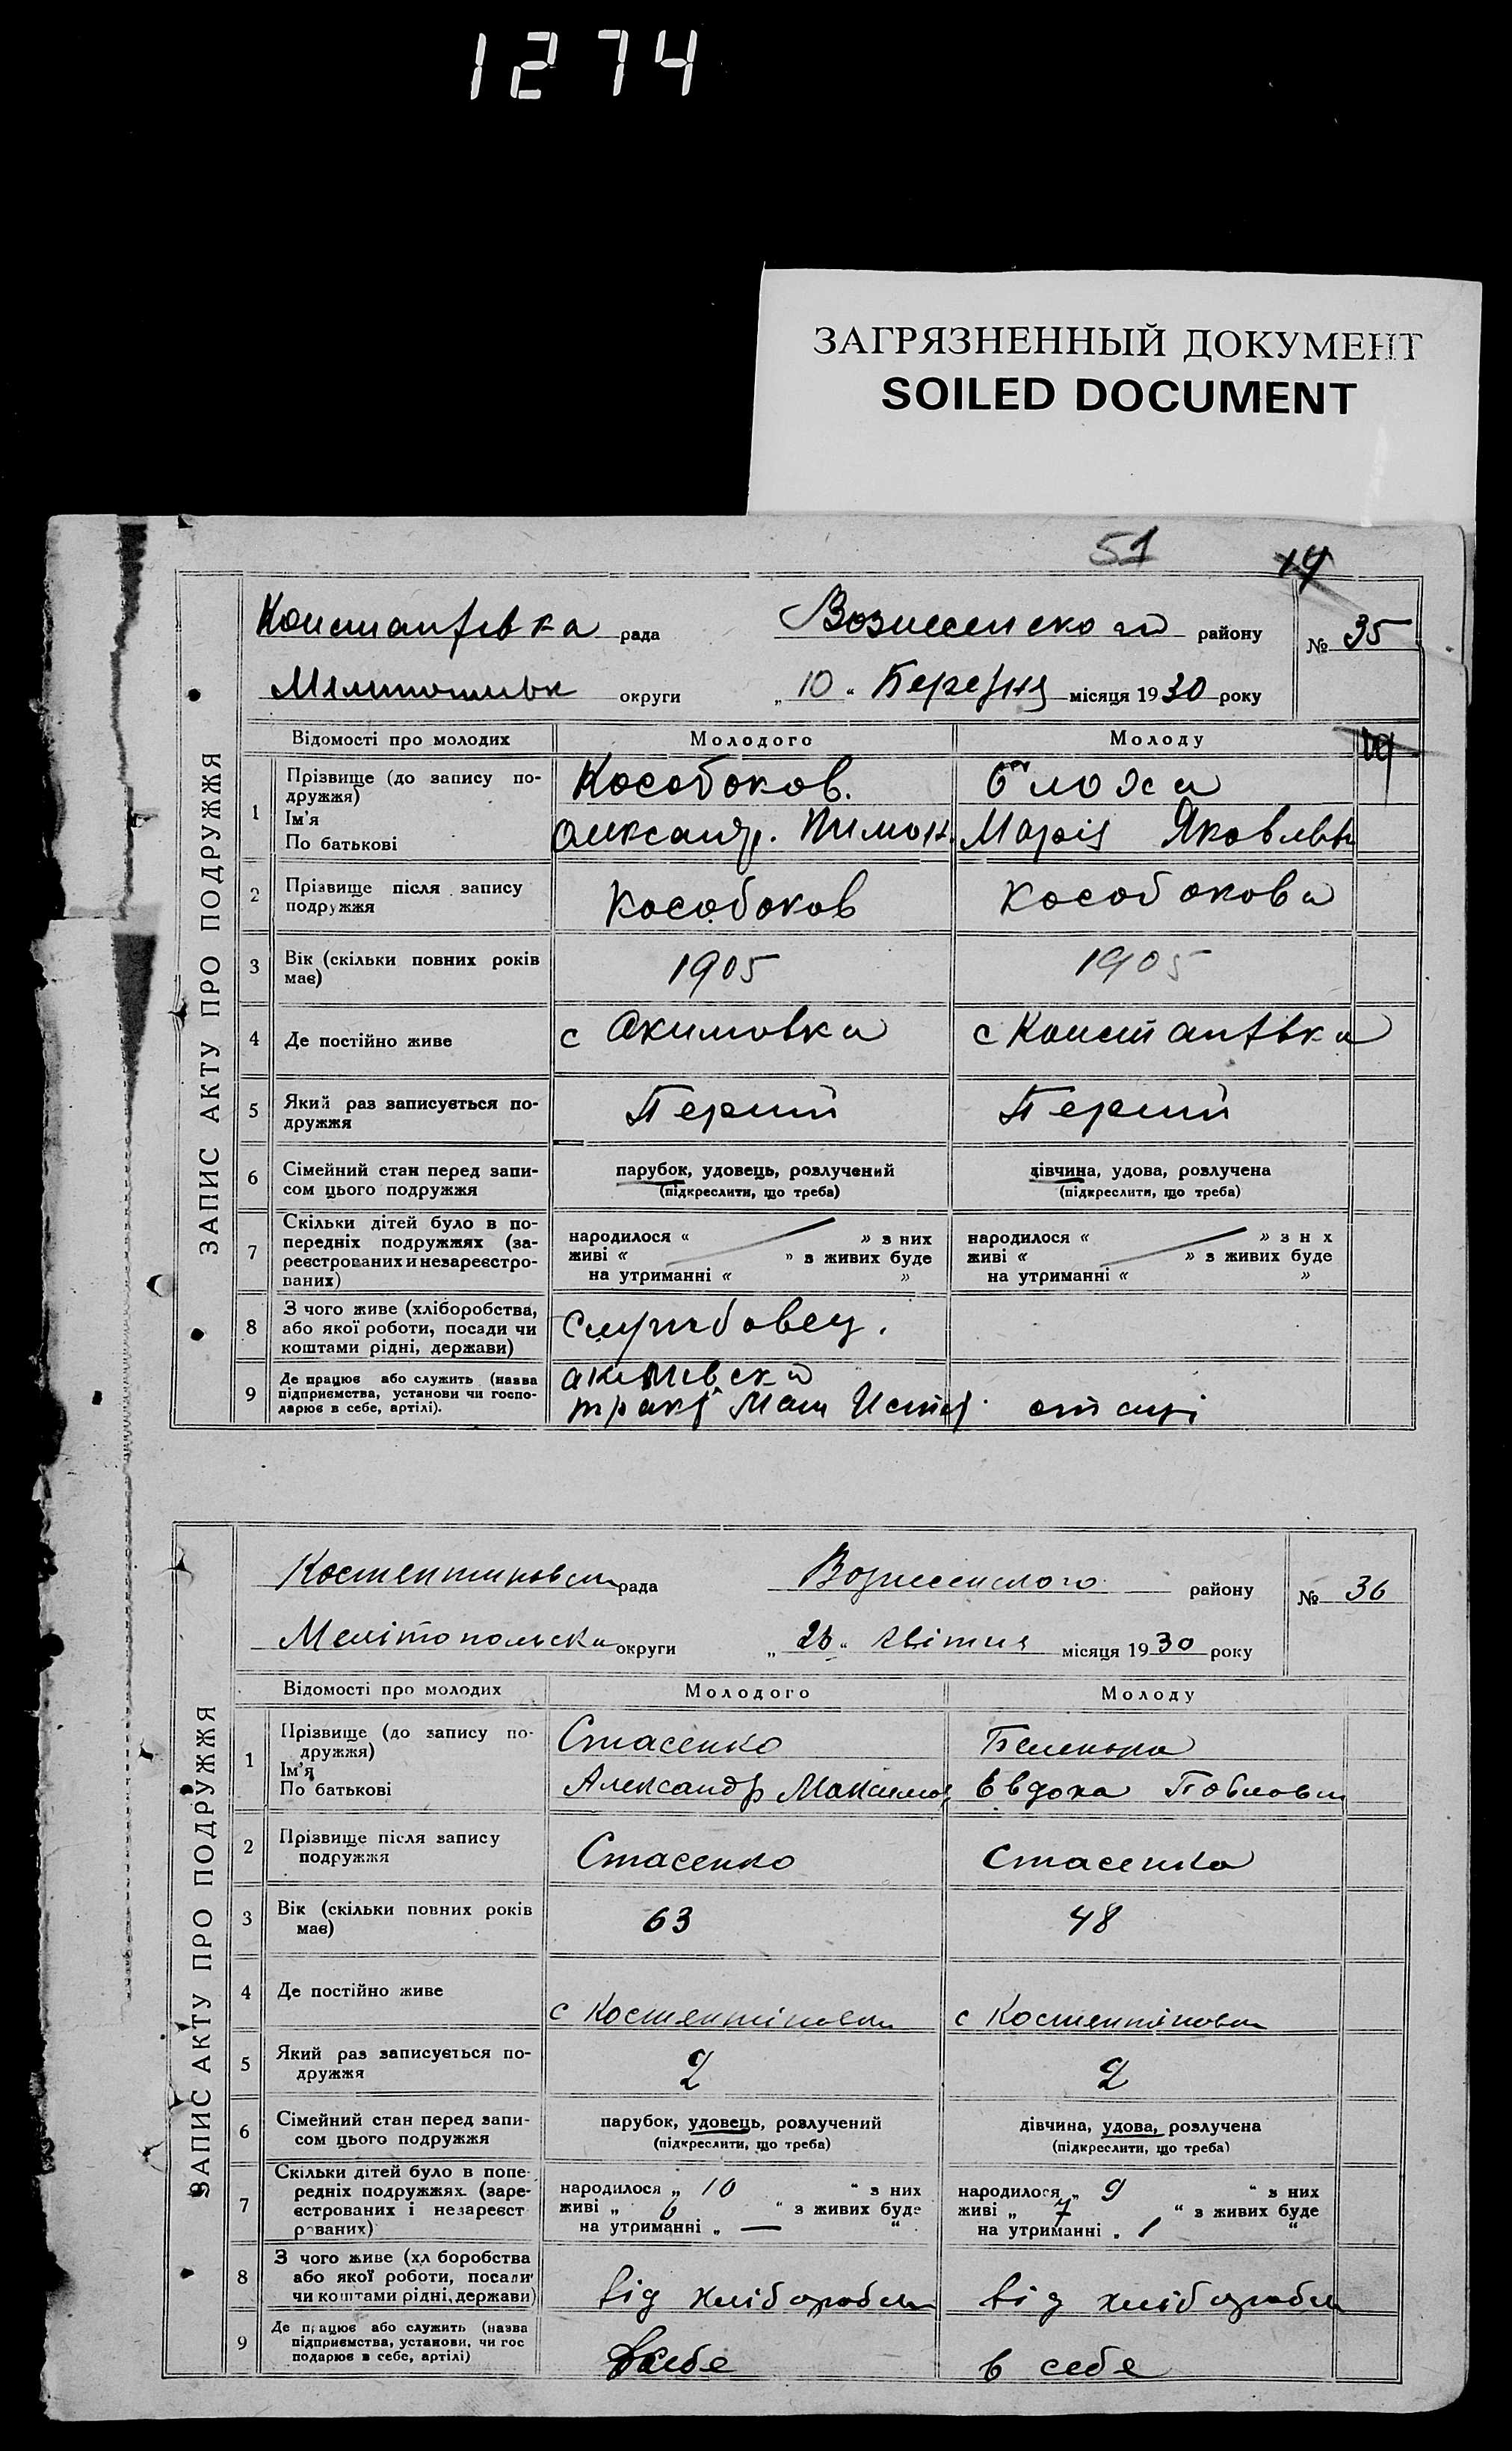 1274
ЗАГРЯЗНЕННЫЙ ДОКУМЕНТ
SOILED DOCUMENT
51 14
ЗАПИС АКТУ ПРО ПОДРУЖЖЯ
рада Вознесенского району № 35
округи „ 10 “ Березня місяця 1930 року
Відомості про молодих Молодого Молоду
1 Прізвище (до запису по-
дружжя) Кособоков.
Ім’я
По батькові Олександр. Марія Яковлевн
2 Прізвище після запису
подружжя Кособоков Кособокова
3 Вік (скільки повних років
має) 1905 1905
4 Де постійно живе с Акимовка с
5 Який раз записується по-
дружжя Перший Перший
6 Сімейний стан перед запи-
сом цього подружжя
парубок, удовець, розлучений дівчина, удова, розлучена
(підкреслити, що треба) (підкреслити, що треба)
7 Скільки дітей було в по-
передніх подружжях (за-
реєстрованих и незареєстро-
ваних)
народилося “ ” з них народилося “ ” з н х
живі “ ” з живих буде живі “ ” з живих буде
на утриманні “ ” на утриманні “ ”
8 З чого живе (хліборобства,
або якої роботи, посади чи
коштами рідні, держави)
9 Де працює або служить (назва
підприємства, установи чи госпо-
дарює в себе, артілі).
ЗАПИС АКТУ ПРО ПОДРУЖЖЯ
рада Вознесенского району № 36
Мелітопольска округи місяця 1930 року
Відомості про молодих Молодого Молоду
1 Прізвище (до запису по-
дружжя) Стасенко
Ім’я
По батькові Александр Максимов Евдоха Повловн
2 Прізвище після запису
подружжя Стасенко Стасенко
3 Вік (скільки повних років
має) 63 48
4 Де постійно живе
с с
5 Який раз записується по-
дружжя 2 2
6 Сімейний стан перед запи-
сом цього подружжя
парубок, удовець, розлучений дівчина, удова, розлучена
(підкреслити, що треба) (підкреслити, що треба)
7 Скільки дітей було в попе-
редніх подружжях (заре-
єстрованих і незареєст
рованих)
народилося „ 10 “ з них народилося „ 9 “ з них
живі „ 6 “ з живих буде живі „ 7 “ з живих буде
на утриманні „ — “ на утриманні „ 1 “
8 З чого живе (хл боробства
або якої роботи, посади
чи коштами рідні, держави)
від від
9 Де працює або служить (назва
підприємства, установи, чи гос
подарює в себе, артілі)
в себе